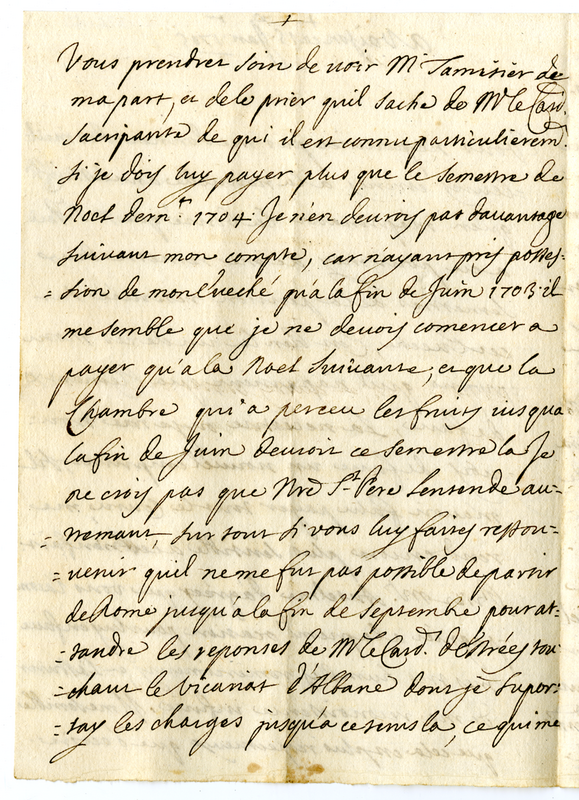 +
Vous prendrez soin de voir Mr Tamisier de
ma part, et de le prier qu'il sache de Mr le Card.
Sacripante de qui il est connu particulierem.t
si je dois luy payer plus que le semestre de
Noel dern.r 1704. Je n'en devrois pas davantage
suivant mon compte, car n'ayant pris posses-
=sion de mon Eveché qu'a la fin de Juin 1703 il
me semble que je ne devois comencer a
payer qu'a la Noel suivante, et que la
Chambre qui a perceu les fruits jusqu'a
la fin de Juin devroit ce semestre la. Je
ne crois pas que Nre St Pere l'entende au-
=tremant, sur tout si vous luy faites ressou-
=venir qu'il ne me fut pas possible de partir
de Rome jusqu'a la fin de Septembre pour at-
=tandre les reponses de Mr le Card. d'Estrées tou-
=chant le vicariat d'Albane dont je supor-
=tay les charges jusqu'a ce tems la, ce qui me